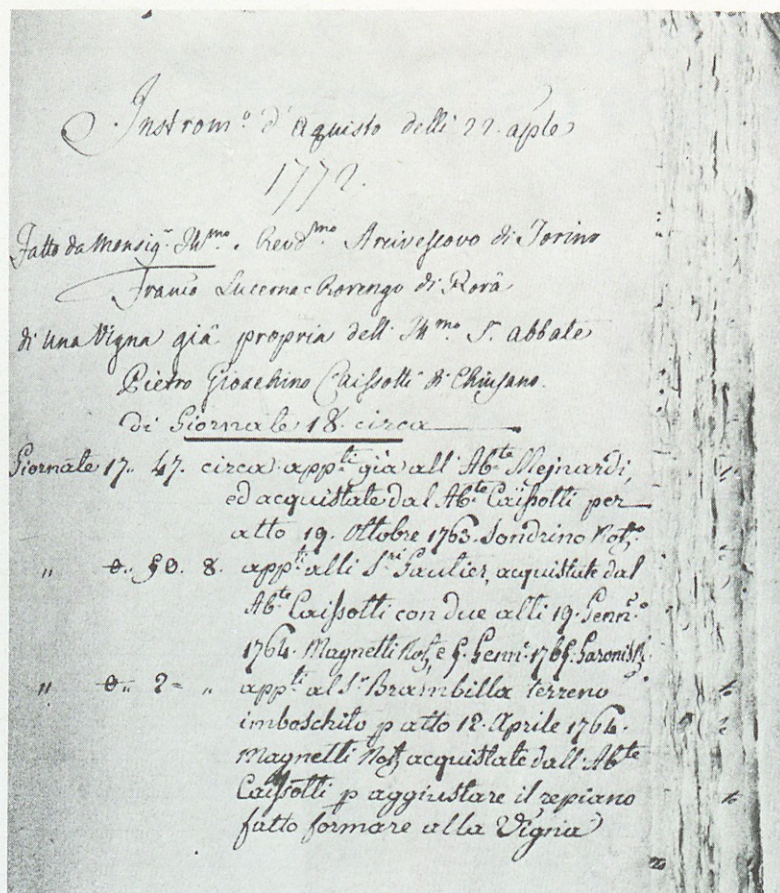 Instrom.º d'aquisto delli 22. aple
1772.
Fatto da Monsig.r Ill.mo e Revd.mo Arcivescovo di Torino
Franco Lucerna Rorengo di Rorà
di una Vigna già propria dell'Ill.mo S.r abbate
Pietro Gioachino Caissotti di Chiusano.
di Giornale 18. circa
Giornale 17. 47. circa app.ti già all'Ab.te Mejnardi,
ed acquistate dal Ab.te Caissotti per
atto 19. Ottobre 1763. Sondrino Not.o
" 0.. 50. 8. app.ti alli S.ri Gautier, acquistate dal
Ab.te Caissotti con due atti 19. Genn.o
1764. Magnetti Not. e 5. Genn. 1765.
" 0.. 2 = " app.ti al S.r Brambilla terreno
imboschito p atto 12. Aprile 1764.
Magnetti Not. acquistate dall'Ab.te
Caissotti p aggiustare il repiano
fatto formare alla Vignia